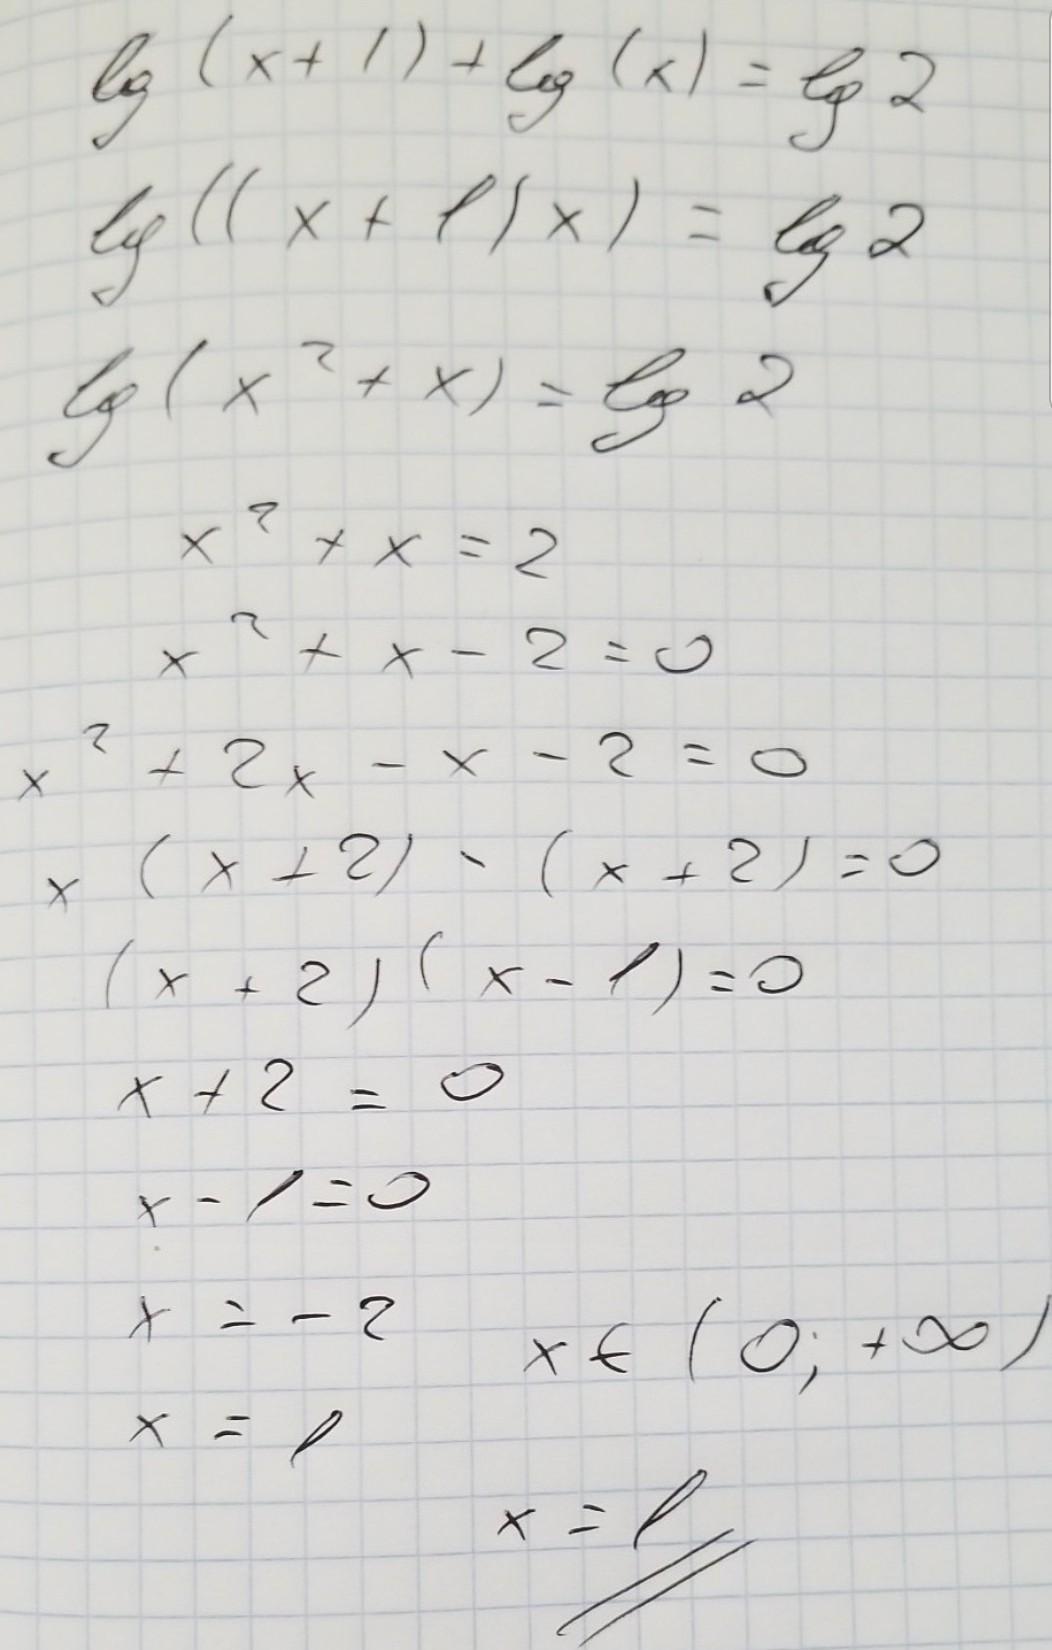 lg (x + 1) + lg (x) = lg 2
lg ((x + 1) x) = lg 2
lg (x² + x) = lg 2
x² + x = 2
x² + x - 2 = 0
x² + 2x - x - 2 = 0
x (x + 2) - (x + 2) = 0
(x + 2) (x - 1) = 0
x + 2 = 0
x - 1 = 0
x = -2
x ∈ (0; +∞)
x = 1
x = 1